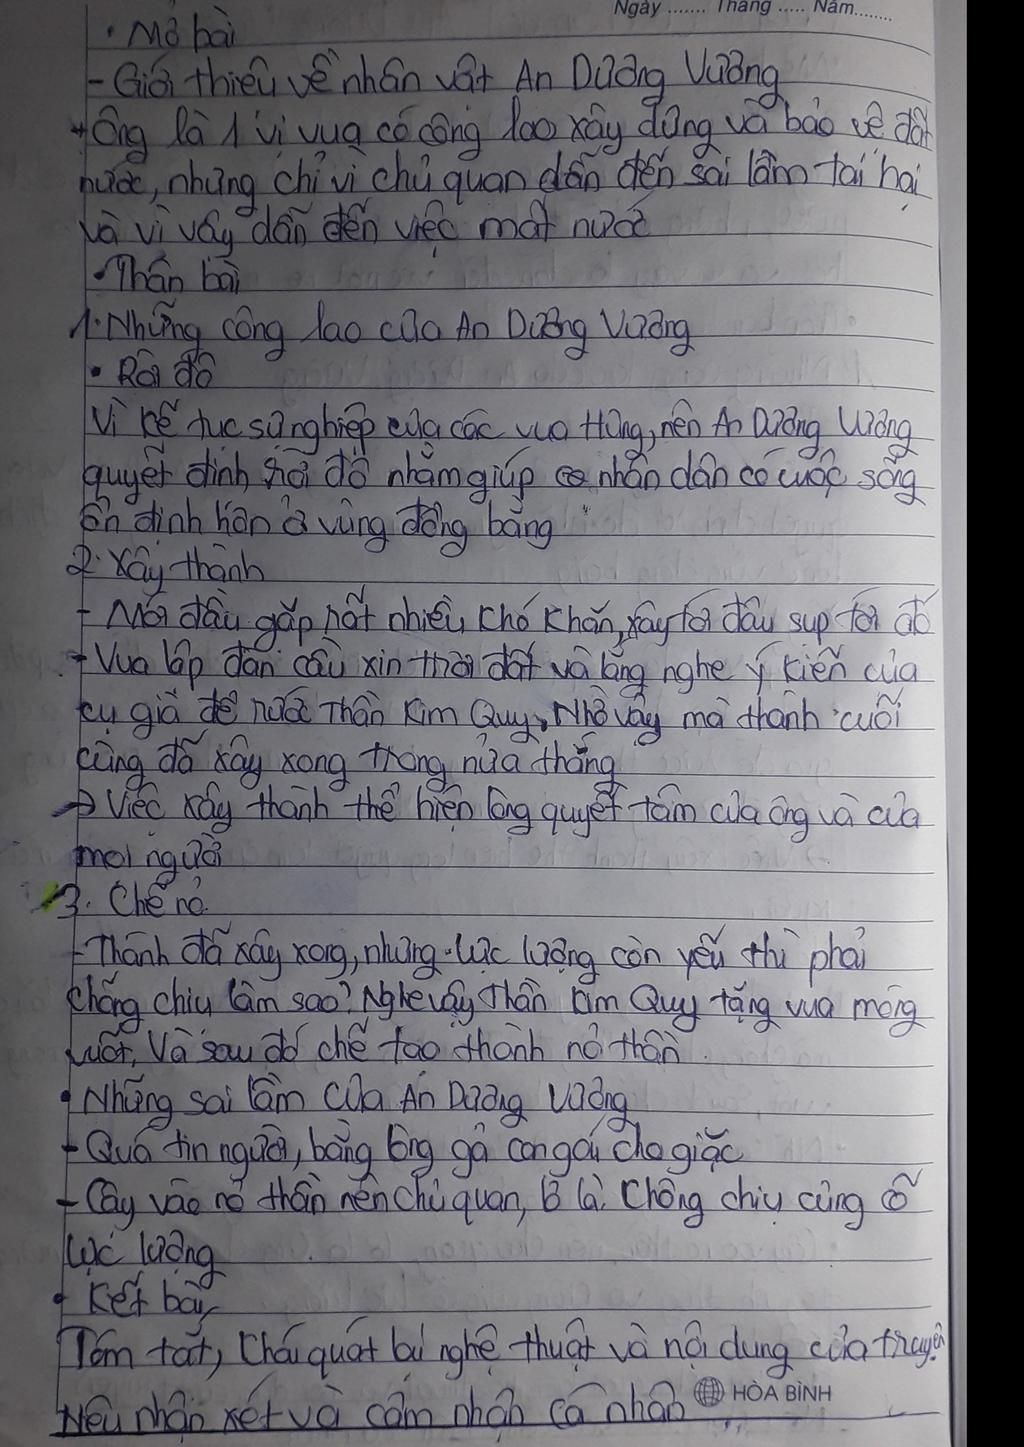 Ngày ....... Tháng ..... Năm........
• Mở bài
- Giới thiệu về nhân vật An Dương Vương
+ Ông là 1 vị vua có công lao xây dựng và bảo vệ đất
nước, nhưng chỉ vì chủ quan dẫn đến sai lầm tai hại
và vì vậy dẫn đến việc mất nước
• Thân bài
1. Những công lao của An Dương Vương
• Rời đô
Vì kế tục sự nghiệp của các vua Hùng, nên An Dương Vương
quyết định rời đô nhằm giúp nhân dân có cuộc sống
ổn định hơn ở vùng đồng bằng
2. Xây thành
- Mới đầu gặp rất nhiều khó khăn, xây tới đâu sụp tới đó
- Vua lập đàn cầu xin trời đất và lắng nghe ý kiến của
cụ già để rước Thần Kim Quy. Nhờ vậy mà thành cuối
cùng đã xây xong trong nửa tháng
→ Việc xây thành thể hiện lòng quyết tâm của ông và của
mọi người
3. Chế nỏ
- Thành đã xây xong, nhưng lực lượng còn yếu thì phải
chống chịu làm sao? Nghe vậy Thần Kim Quy tặng vua móng
vuốt. Và sau đó chế tạo thành nỏ thần.
• Những sai lầm của An Dương Vương
- Quá tin người, bằng lòng gả con gái cho giặc
- Cậy vào nỏ thần nên chủ quan, lơ là. Không chịu củng cố
lực lượng
• Kết bài
Tóm tắt, khái quát lại nghệ thuật và nội dung của truyện
Nêu nhận xét và cảm nhận cá nhân
HÒA BÌNH